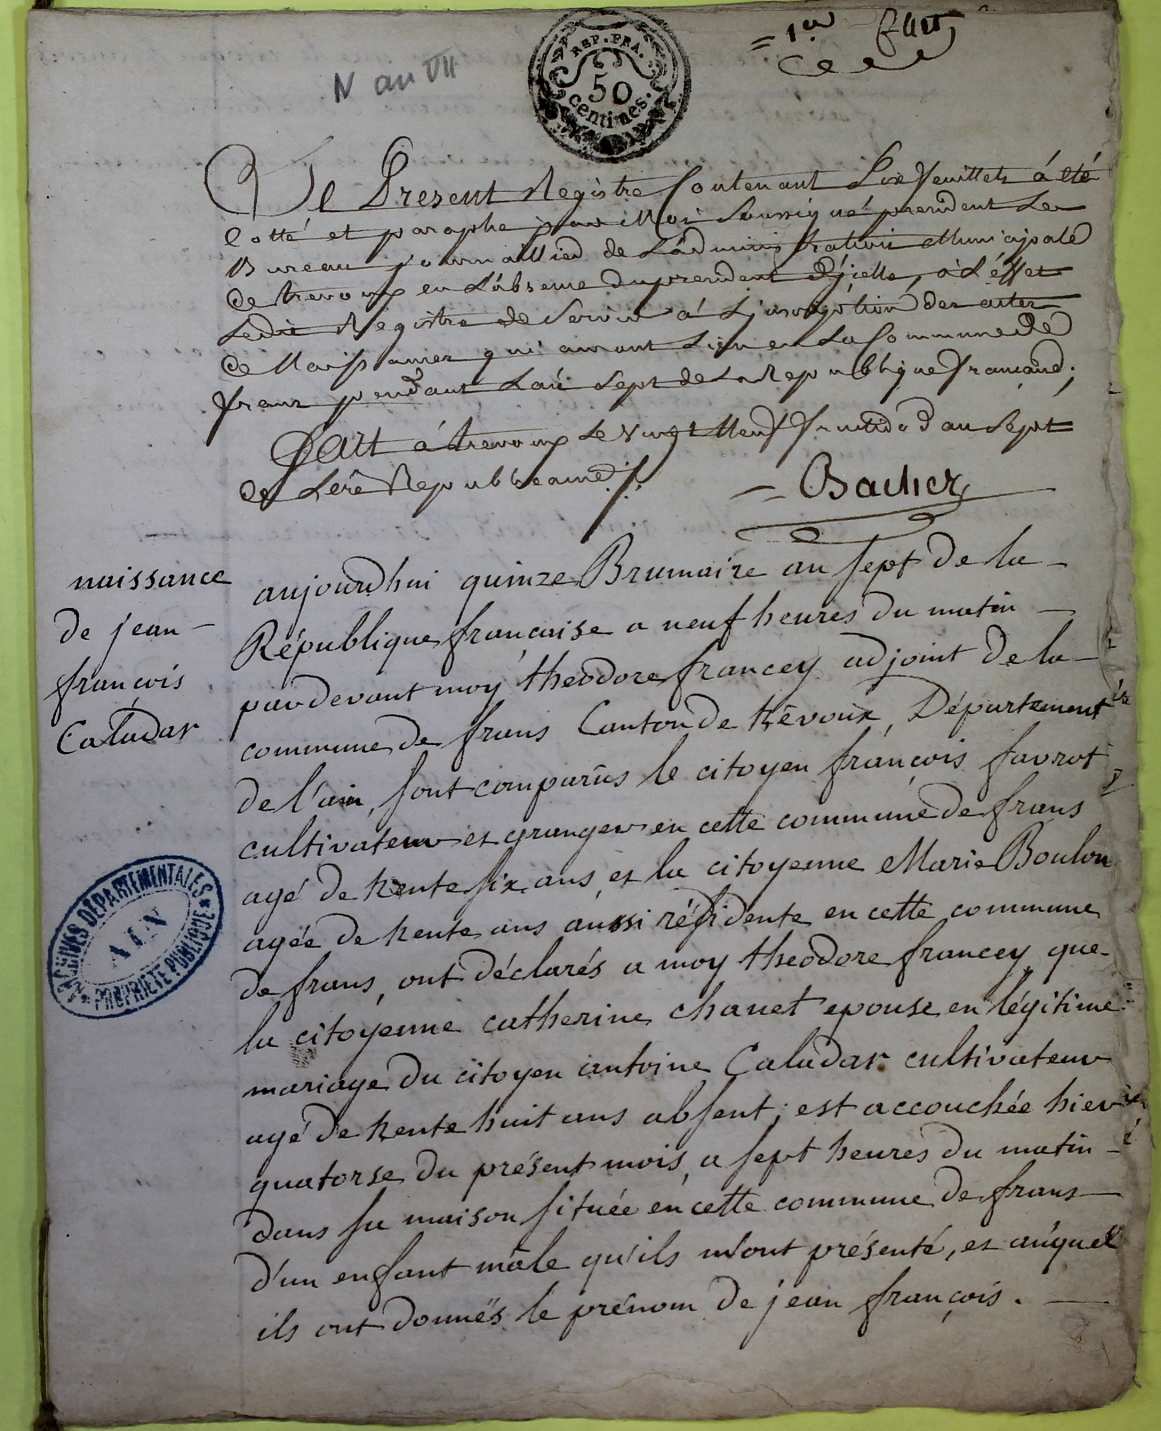 N an VII
REP. FRA.
50
centimes.
= 1er
Le Present Registre Contenant Six feuillets à été
Cotté et paraphé par Moi Soussigné president
Bureau journallier de L'administration Municipale
de trevoux en L'absence du president d'jcelle, à L'éffet
Ledit Registre de Servir à L'jnscription des actes
de Naissances qui auront Lieu en La Commune de
frans pendant L'an Sept de La Republique francaise;
fait à trevoux Le vingt Neuf fructidor an Sept
de L'ere Republicaine
= Bacher
naissance
de jean
françois
Caladar
aujourdhui quinze Brumaire an sept de la
République française a neuf heures du matin
pardevant moy théodore francey adjoint de la
commune de frans Canton de trévoux, Département
de l'ain, sont comparûs le citoyen françois favrot
cultivateur et granger en cette commune de frans
agé de trente six ans, et la citoyenne Marie Boulon
agée de trente ans áussi résidente en cette commune
de frans, ont déclarés a moy théodore francey que
la citoyenne catherine chanet epouse en légitime
mariage du citoyen antoine Caladar cultivateur
agé de trente huit ans absent, est accouchée hier
quatorse du présent mois, a sept heures du matin
dans sa maison située en cette commune de frans
d'un enfant mâle qu'ils m'ont présenté, et auquel
ils ont donnés le prénom de jean françois.
ARCHIVES DÉPARTEMENTALES
AIN
PROPRIÉTÉ PUBLIQUE